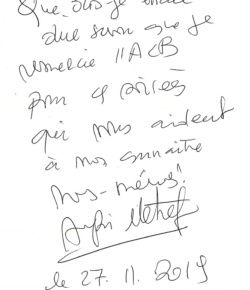 Que dois-je
dire sinon que je
remercie l'ACB
pour ces soirées
qui nous aident
à nous connaître
nous-mêmes!
le 27. 11. 2019